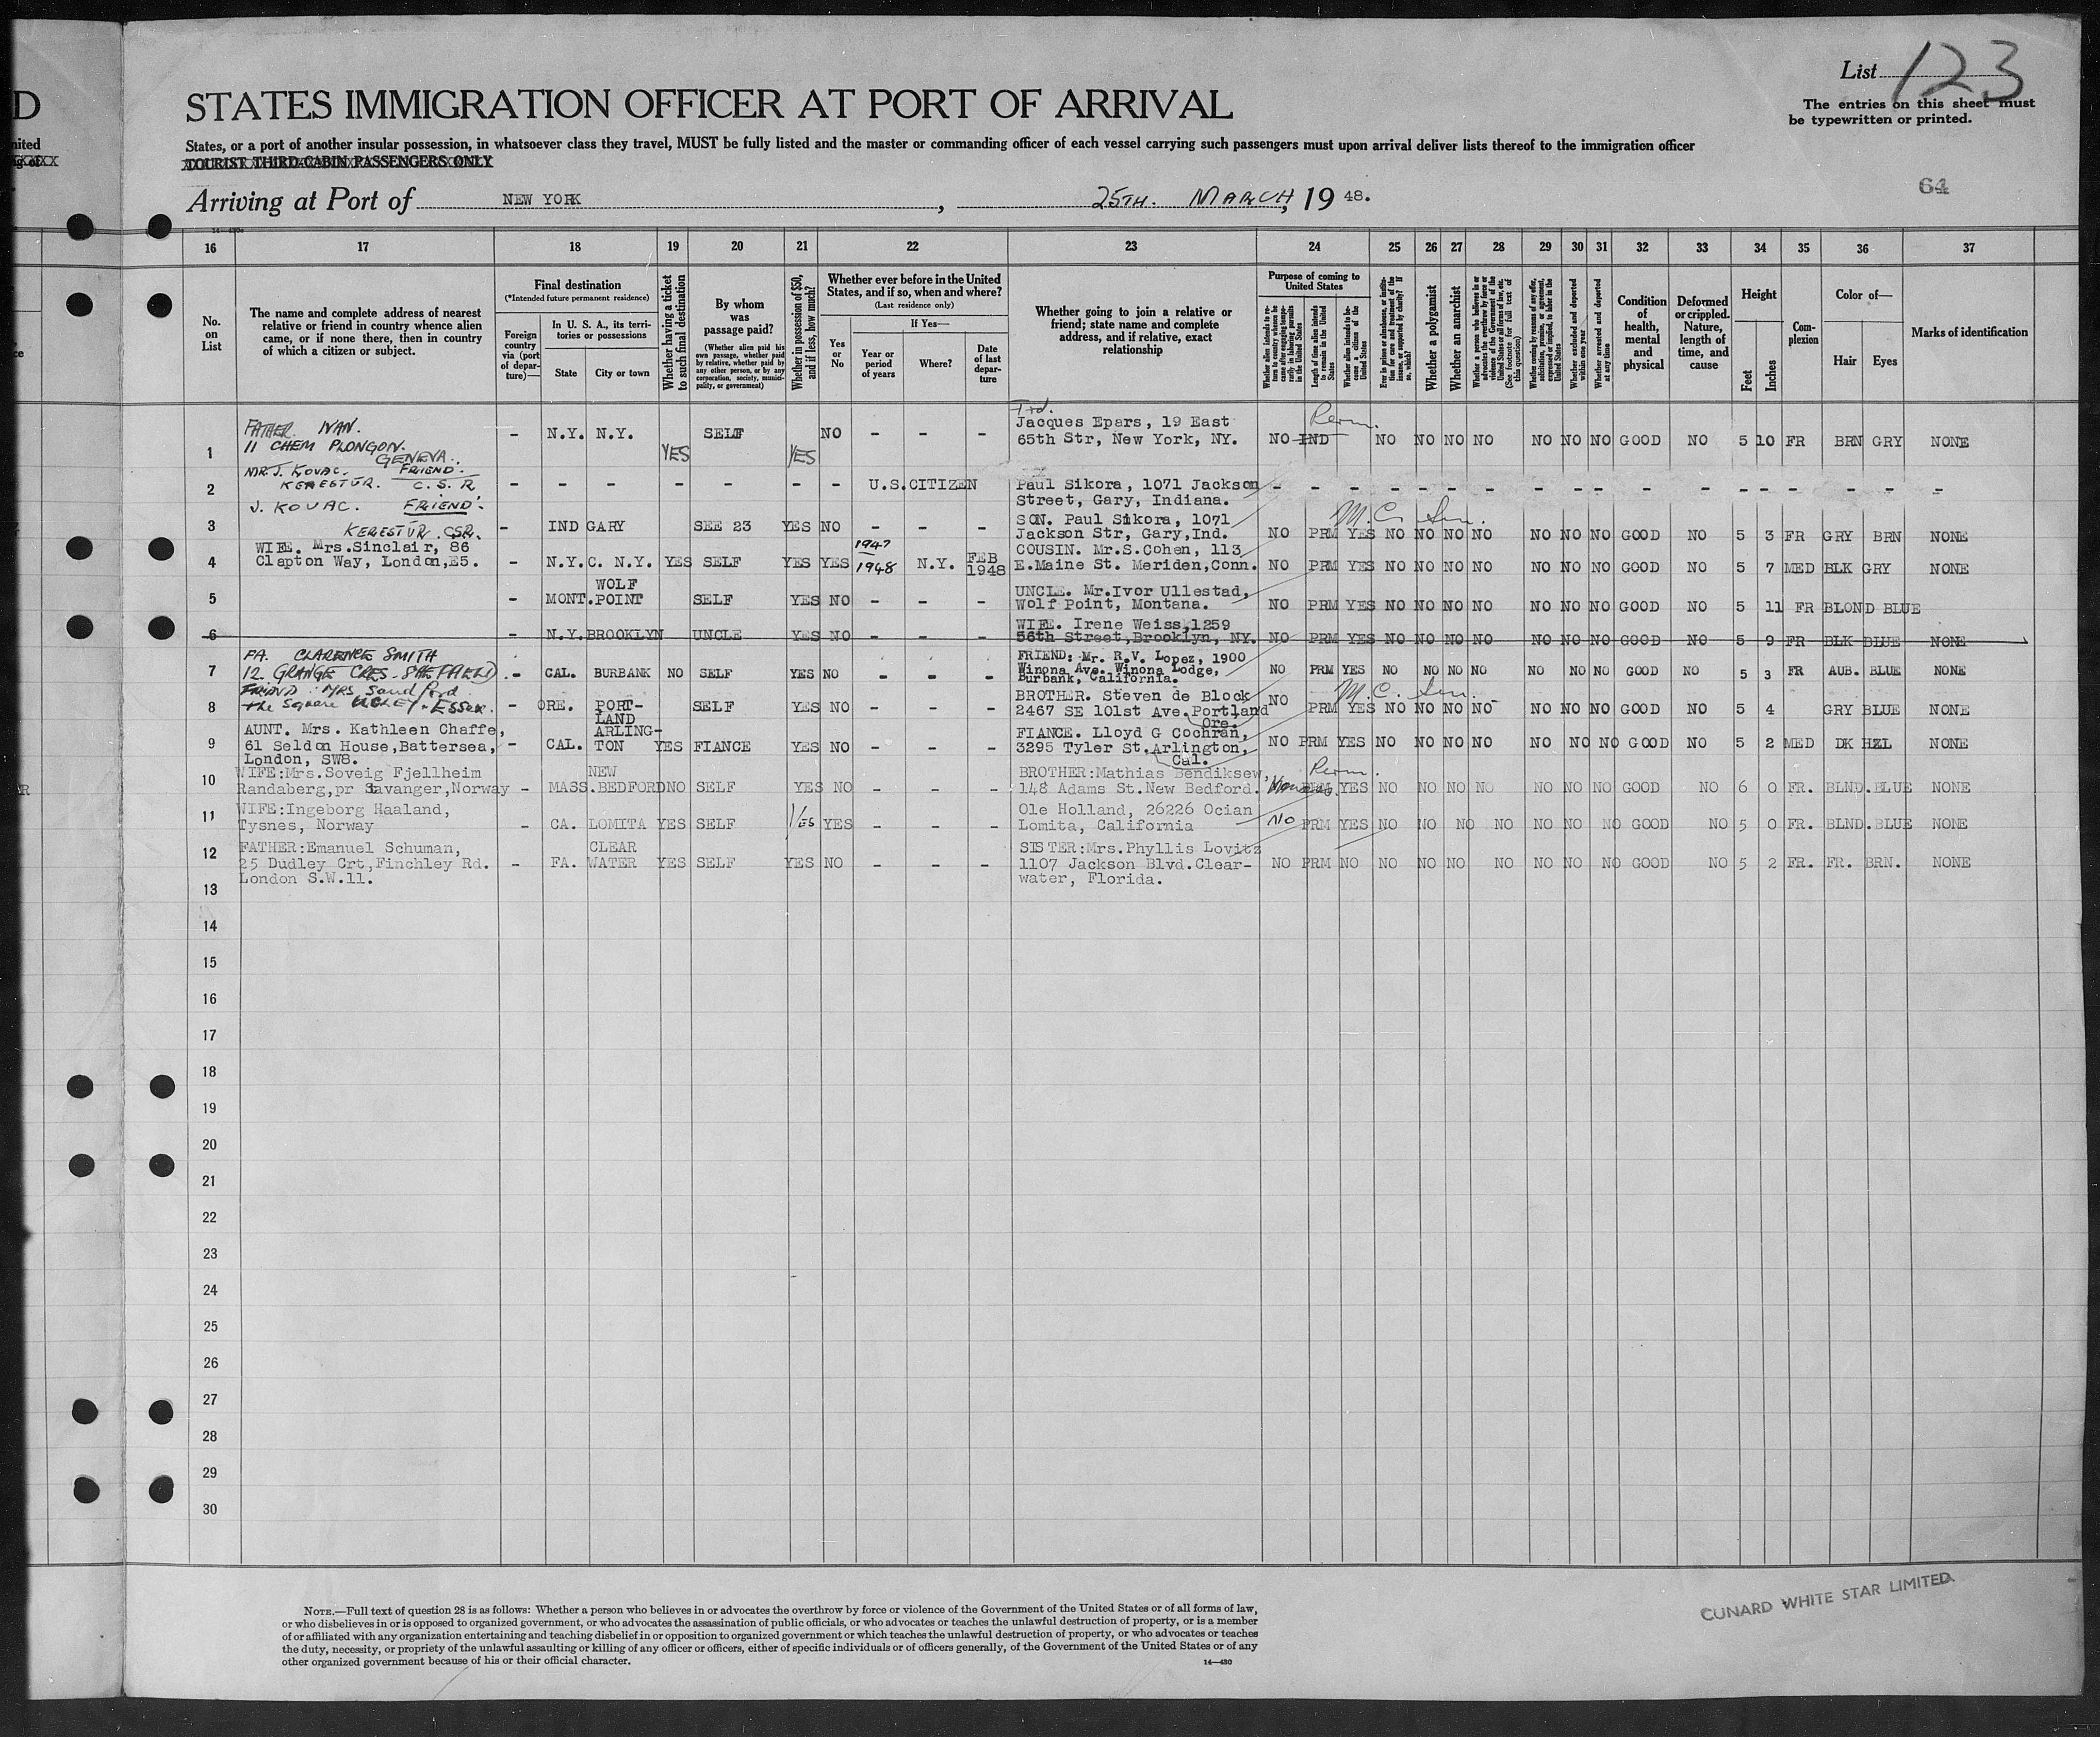 D
nited
List 123
STATES IMMIGRATION OFFICER AT PORT OF ARRIVAL
The entries on this sheet must
be typewritten or printed.
States, or a port of another insular possession, in whatsoever class they travel, MUST be fully listed and the master or commanding officer of each vessel carrying such passengers must upon arrival deliver lists thereof to the immigration officer
TOURIST THIRD-CABIN PASSENGERS ONLY
Arriving at Port of NEW YORK, 25TH. MARCH, 19 48.
64
16 17 18 19 20 21 22 23 24 25 26 27 28 29 30 31 32 33 34 35 36 37
No. on List
The name and complete address of nearest
relative or friend in country whence alien
came, or if none there, then in country
of which a citizen or subject.
Final destination
(*Intended future permanent residence)
Foreign country via (port of departure)—
In U. S. A., its territories or possessions
State
City or town
Whether having a ticket to such final destination
By whom was passage paid?
(Whether alien paid his own passage, whether paid by relative, whether paid by any other person, or by any corporation, society, municipality, or government)
Whether in possession of $50, and if less, how much?
Whether ever before in the United States, and if so, when and where?
(Last residence only)
Yes or No
If Yes—
Year or period of years
Where?
Date of last departure
Whether going to join a relative or
friend; state name and complete
address, and if relative, exact
relationship
Purpose of coming to United States
Whether alien intends to return to country whence he came after engaging temporarily in laboring pursuits in the United States
Length of time alien intends to remain in the United States
Whether alien intends to become a citizen of the United States
Ever in prison or almshouse, or institution for care and treatment of the insane, or supported by charity? If so, which?
Whether a polygamist
Whether an anarchist
Whether a person who believes in or advocates the overthrow by force or violence of the Government of the United States or all forms of law, etc. (See footnote for full text of this question)
Whether coming by reason of any offer, solicitation, promise, or agreement, expressed or implied, to labor in the United States
Whether excluded and deported within one year
Whether arrested and deported at any time
Condition of health, mental and physical
Deformed or crippled. Nature, length of time, and cause
Height
Feet
Inches
Complexion
Color of—
Hair
Eyes
Marks of identification
1 FATHER IVAN.
11 CHEM PLONGON.
GENEVA.
- N.Y. N.Y. YES SELF YES NO - - - Frd.
Jacques Epars, 19 East
65th Str, New York, NY. NO IND Perm. NO NO NO NO NO NO NO GOOD NO 5 10 FR BRN GRY NONE
2 MR. J. KOVAC. FRIEND.
KERESTUR. C.S.R.
- - - - - - - U.S.CITIZEN Paul Sikora, 1071 Jackson
Street, Gary, Indiana. - - - - - - - - - - - - - - - - - -
3 J. KOVAC. FRIEND.
KERESTUR. CSR.
- IND GARY SEE 23 YES NO - - - SON. Paul Sikora, 1071
Jackson Str, Gary,Ind. NO PRM YES NO NO NO NO NO NO NO GOOD NO 5 3 FR GRY BRN NONE
4 WIFE. Mrs.Sinclair, 86
Clapton Way, London,E5.
- N.Y.C. N.Y. YES SELF YES YES 1947
1948 N.Y. FEB
1948 COUSIN. Mr.S.Cohen, 113
E.Maine St. Meriden,Conn. NO PRM YES NO NO NO NO NO NO NO GOOD NO 5 7 MED BLK GRY NONE
5 - MONT. WOLF
POINT SELF YES NO - - - UNCLE. Mr.Ivor Ullestad,
Wolf Point, Montana. NO PRM YES NO NO NO NO NO NO NO GOOD NO 5 11 FR BLOND BLUE
6 - N.Y. BROOKLYN UNCLE YES NO - - - WIFE. Irene Weiss,1259
56th Street,Brooklyn, NY. NO PRM YES NO NO NO NO NO NO NO GOOD NO 5 9 FR BLK BLUE NONE
7 FA. CLARENCE SMITH
12 GRANGE CRES. SHEFFIELD
- CAL. BURBANK NO SELF YES NO - - - FRIEND: Mr. R.V. Lopez, 1900
Winona Ave. Winona Lodge,
Burbank, California. NO PRM YES NO NO NO NO NO NO NO GOOD NO 5 3 FR AUB. BLUE NONE
8 FRIEND: MRS Sandford
The Square UGLEY. Essex.
- ORE. PORT-
LAND SELF YES NO - - - BROTHER. Steven de Block
2467 SE 101st Ave.Portland
Ore. NO PRM YES NO NO NO NO NO NO NO GOOD NO 5 4 GRY BLUE NONE
9 AUNT. Mrs. Kathleen Chaffe,
61 Seldon House,Battersea,
London, SW8.
- CAL. ARLING-
TON YES FIANCE YES NO - - - FIANCE. Lloyd G Cochran,
3295 Tyler St.Arlington,
Cal. NO PRM YES NO NO NO NO NO NO NO GOOD NO 5 2 MED DK HZL NONE
10 WIFE:Mrs.Soveig Fjellheim
Randaberg,pr Savanger,Norway
- MASS. NEW
BEDFORD NO SELF YES NO - - - BROTHER:Mathias Bendiksew,
148 Adams St.New Bedford. Perm. YES NO NO NO NO NO NO NO GOOD NO 6 0 FR. BLND. BLUE NONE
11 WIFE:Ingeborg Haaland,
Tysnes, Norway
- CA. LOMITA YES SELF YES YES - - - Ole Holland, 26226 Ocian
Lomita, California NO PRM YES NO NO NO NO NO NO NO GOOD NO 5 0 FR. BLND. BLUE NONE
12 FATHER:Emanuel Schuman,
25 Dudley Crt,Finchley Rd.
London S.W.11.
- FA. CLEAR
WATER YES SELF YES NO - - - SISTER:Mrs.Phyllis Lovitz
1107 Jackson Blvd.Clear-
water, Florida. NO PRM NO NO NO NO NO NO NO NO GOOD NO 5 2 FR. FR. BRN. NONE
13
14
15
16
17
18
19
20
21
22
23
24
25
26
27
28
29
30
CUNARD WHITE STAR LIMITED.
NOTE.—Full text of question 28 is as follows: Whether a person who believes in or advocates the overthrow by force or violence of the Government of the United States or of all forms of law,
or who disbelieves in or is opposed to organized government, or who advocates the assassination of public officials, or who advocates or teaches the unlawful destruction of property, or is a member
of or affiliated with any organization entertaining and teaching disbelief in or opposition to organized government or which teaches the unlawful destruction of property, or who advocates or teaches
the duty, necessity, or propriety of the unlawful assaulting or killing of any officer or officers, either of specific individuals or of officers generally, of the Government of the United States or of any
other organized government because of his or their official character.
14—480